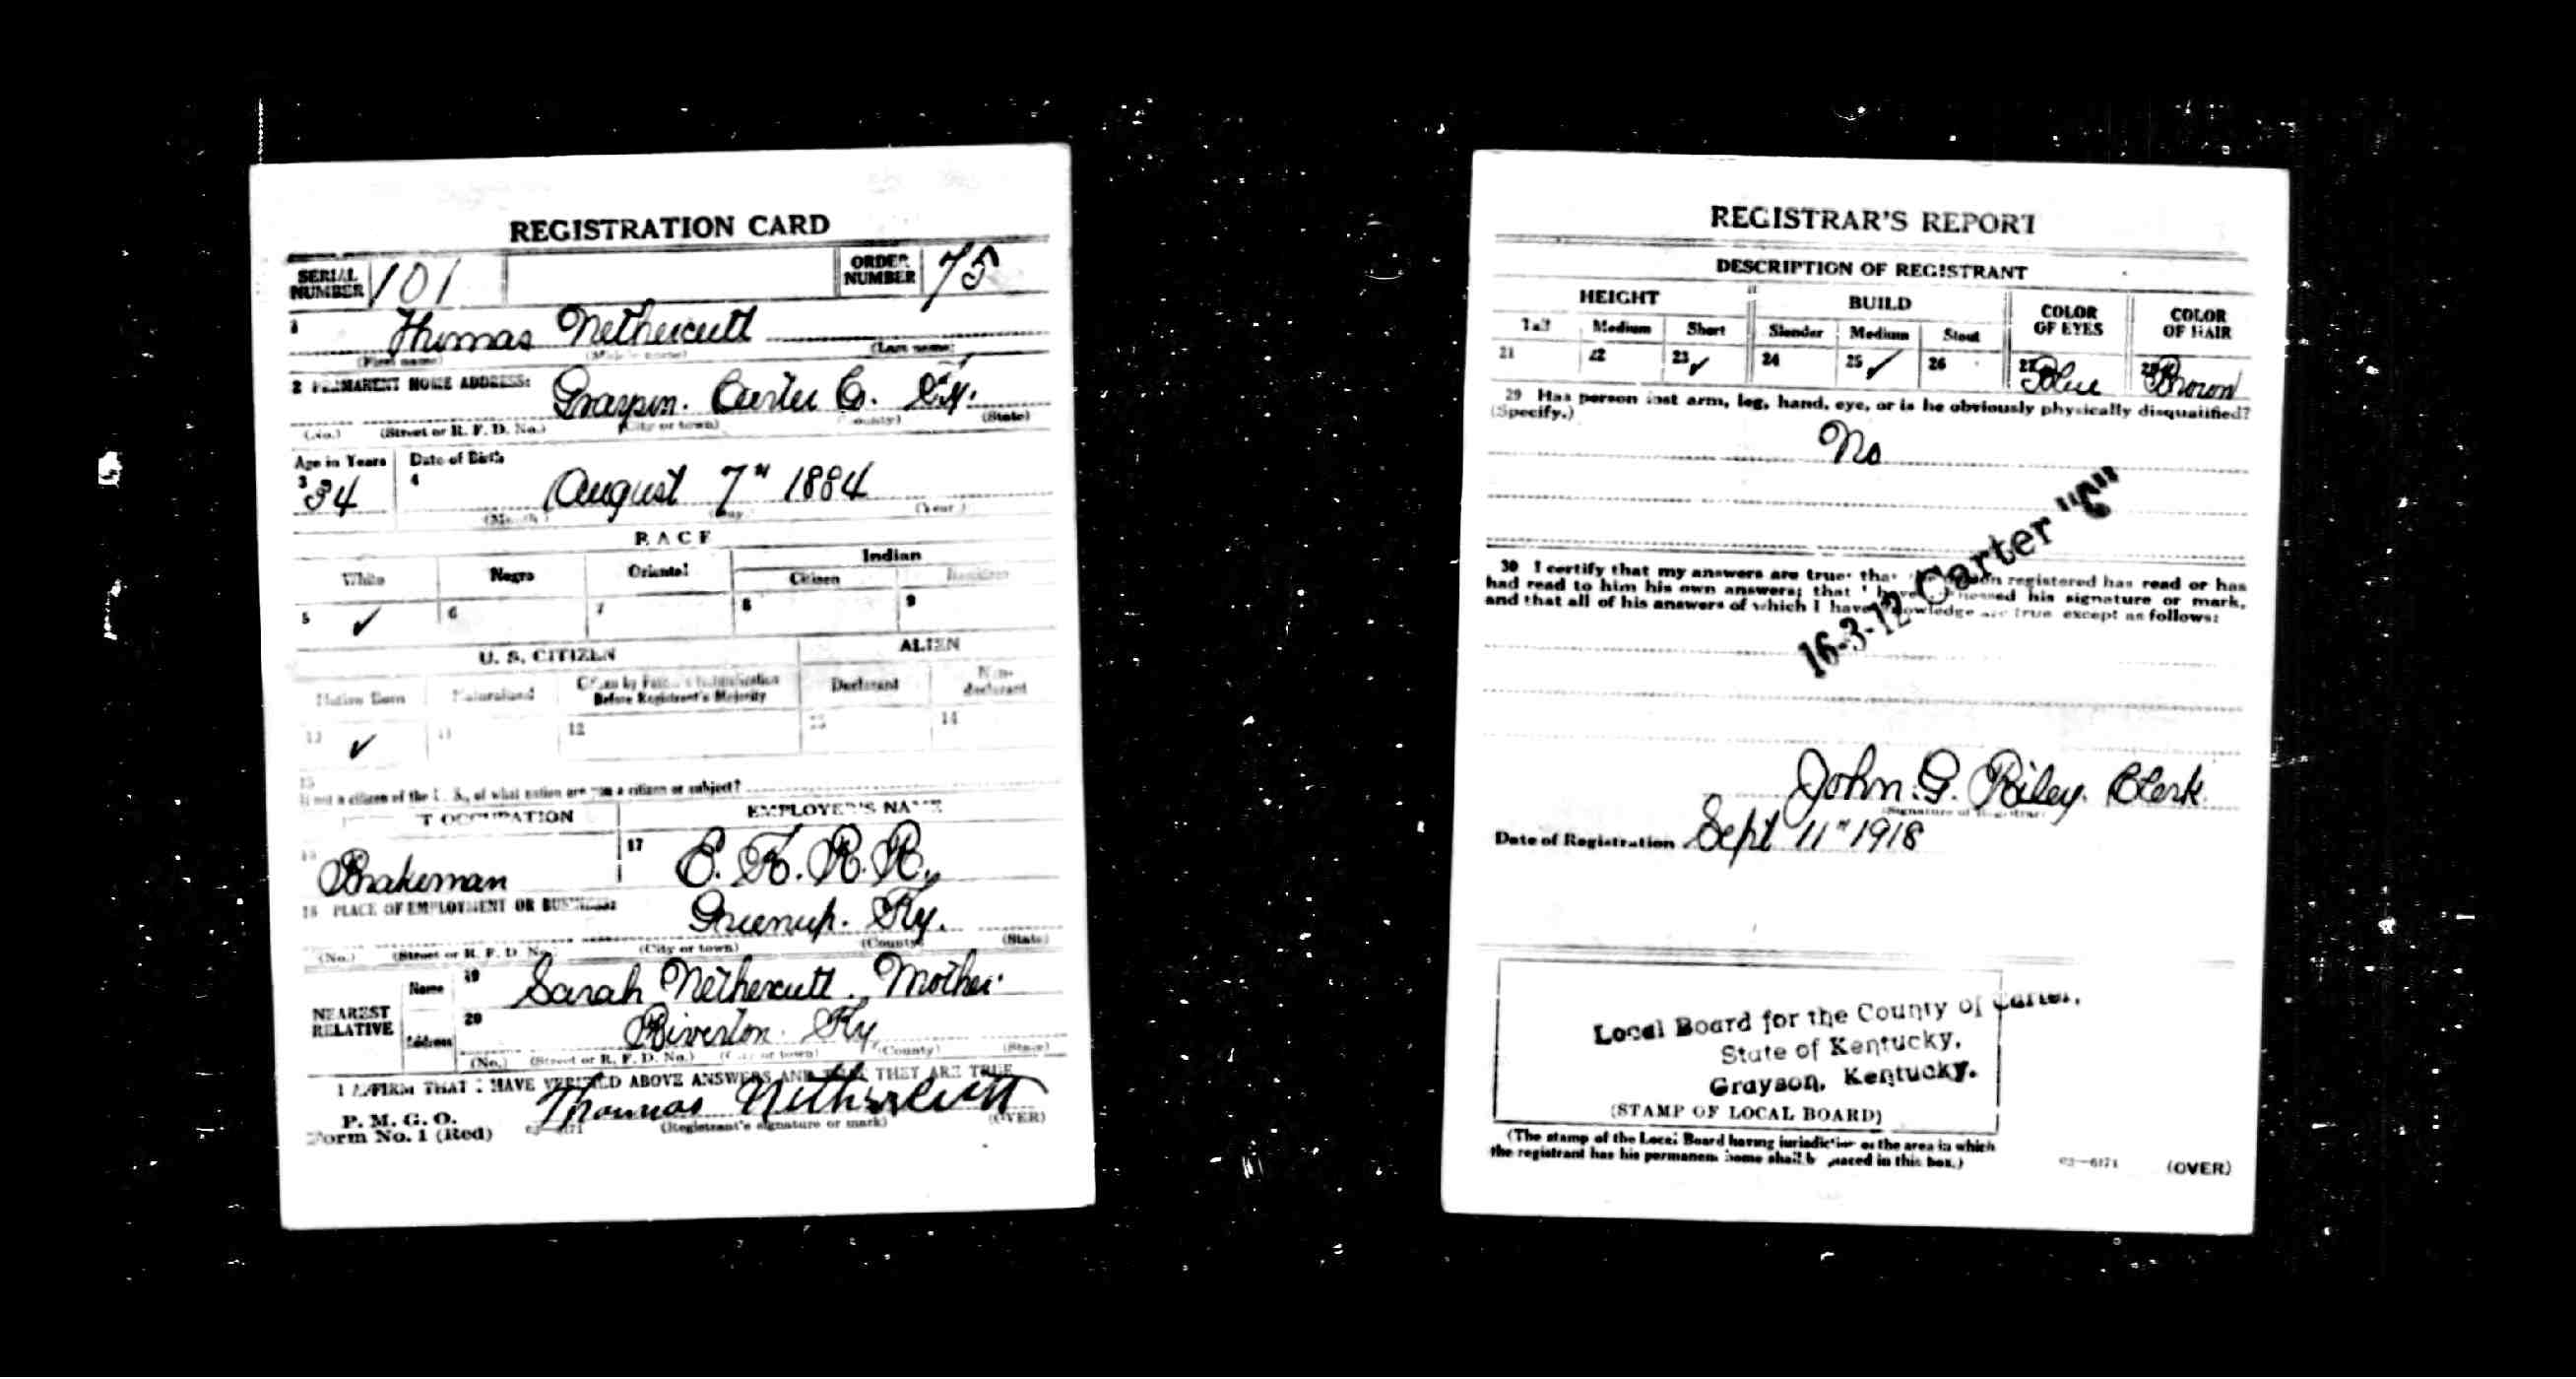 REGISTRATION CARD
SERIAL NUMBER 101 ORDER NUMBER 75
1 Thomas Nethercutt
(First name) (Middle name) (Last name)
2 PERMANENT HOME ADDRESS: Grayson. Carter Co. Ky.
(No.) (Street or R. F. D. No.) (City or town) (County) (State)
Age in Years Date of Birth
3 34 4 August 7" 1884
(Month) (Day) (Year)
RACE
White Negro Oriental Indian
Citizen
5 ✓ 6 7 8 9
U. S. CITIZEN ALIEN
Native Born Naturalized Citizen by Father's Naturalization Before Registrant's Majority Declarant Non-declarant
10 ✓ 11 12 13 14
15
If not a citizen of the U. S., of what nation are you a citizen or subject?
T OCCUPATION EMPLOYER'S NAME
16 Brakeman 17 E. K. R. R.
18 PLACE OF EMPLOYMENT OR BUSINESS: Greenup. Ky.
(No.) (Street or R. F. D. No.) (City or town) (County) (State)
NEAREST RELATIVE Name 19 Sarah Nethercutt. Mother.
Address 20 Riverton. Ky
(No.) (Street or R. F. D. No.) (City or town) (County) (State)
I AFFIRM THAT I HAVE VERIFIED ABOVE ANSWERS AND THAT THEY ARE TRUE
P. M. G. O.
Form No. 1 (Red) Thomas Nethercutt
(Registrant's signature or mark) (OVER)
REGISTRAR'S REPORT
DESCRIPTION OF REGISTRANT
HEIGHT BUILD COLOR OF EYES COLOR OF HAIR
Tall Medium Short Slender Medium Stout
21 22 23 ✓ 24 25 ✓ 26 27 Blue 28 Brown
29 Has person lost arm, leg, hand, eye, or is he obviously physically disqualified?
(Specify.)
No
30 I certify that my answers are true; that the person registered has read or has
had read to him his own answers; that I have witnessed his signature or mark,
and that all of his answers of which I have knowledge are true except as follows:
16-3-12 Carter "C"
John. G. Riley. Clerk
(Signature of Registrar)
Date of Registration Sept 11" 1918
Local Board for the County of Carter,
State of Kentucky,
Grayson, Kentucky.
(STAMP OF LOCAL BOARD)
(The stamp of the Local Board having jurisdiction of the area in which
the registrant has his permanent home shall be placed in this box.)
03—6171 (OVER)